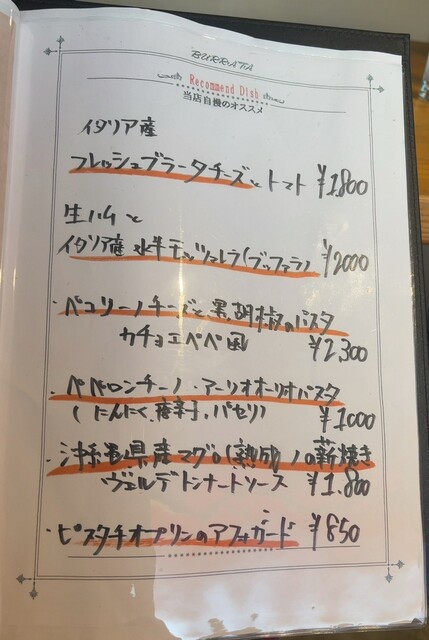 BURRATA
Recommend Dish
当店自慢のオススメ
イタリア産
フレッシュブラータチーズとトマト ¥1,800
生ハムと
イタリア産 水牛モッツァレラ(ブッファラ) ¥2000
・ペコリーノチーズと黒胡椒のパスタ
カチョエペペ風 ¥2,300
・ペペロンチーノ・アーリオオーリオパスタ
(にんにく、唐辛子、パセリ) ¥1000
・沖縄県産マグロ(熟成)の薪焼き
ヴェルデトンナートソース ¥1,800
・ピスタチオプリンのアフォガード ¥850